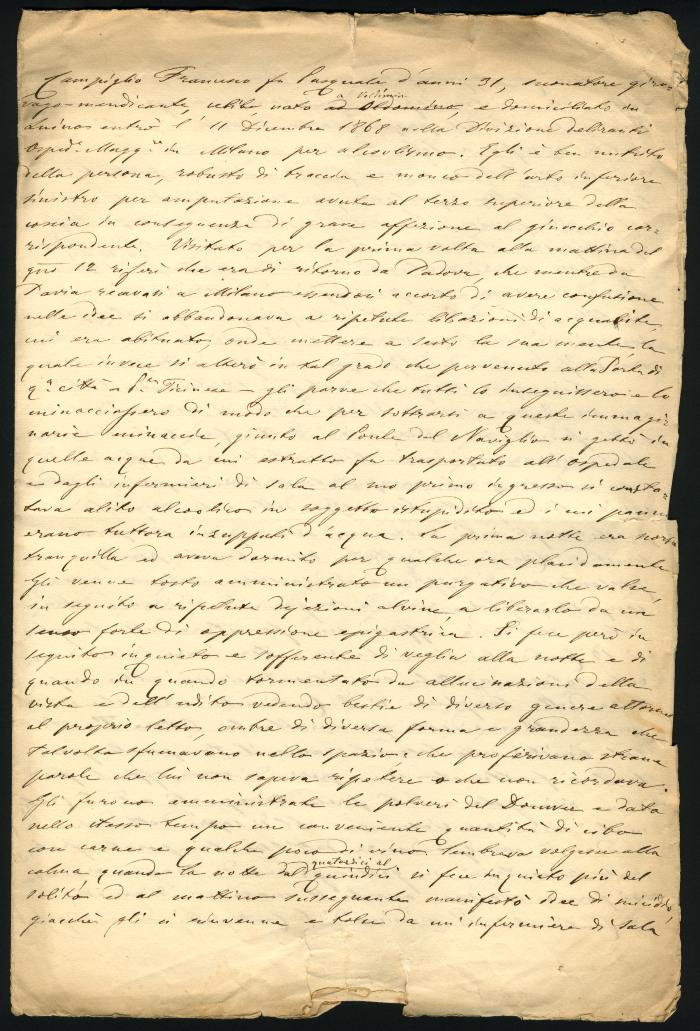 Campiglio Francesco fu Pasquale d'anni 31, suonatore giro-
vago-mendicante, celibe, nato e domiciliato in
entrò l'11 Dicembre 1868 nella Divisione deliranti
Osped.e Magg.e in Milano per alcoolismo. Egli è ben nutrito
della persona, robusto di braccia e monco dell'arto inferiore
sinistro per amputazione avuta al terzo superiore della
coscia in conseguenza di grave affezione al ginocchio cor=
rispondente. Visitato per la prima volta alla mattina del
12 riferì che era di ritorno da Padova, che mentre da
Pavia recavasi a Milano essendosi accorto di avere confusione
nelle idee si abbandonava a ripetute libazioni di acquavite,
cui era abituato, onde mettere a sesto la sua mente, la
quale invece si alterò in tal grado che pervenuto alla Porta di
q.a città - P.a Ticinese - gli parve che tutti lo inseguissero e lo
minacciassero di modo che per sottrarsi a queste immagi-
narie minaccie, giunto al Ponte del Naviglio si gettò in
quelle acque da cui estratto fu trasportato all'Ospedale
e dagli infermieri di sala al suo primo ingresso si consta=
tava alito alcoolico in soggetto istupidito ed i cui panni
erano tuttora inzuppati d'acqua. La prima notte era
tranquilla ed aveva dormito per qualche ora placidamente
Gli venne tosto amministrato un purgativo che valse,
in seguito a ripetute dejezioni alvine, a liberarlo da un
senso forte di oppressione epigastrica. Si fece però in
seguito inquieto e sofferente di veglia alla notte e di
quando in quando tormentato da allucinazioni della
vista e dell'udito vedendo bestie di diverso genere attorno
al proprio letto, ombre di diversa forma e grandezza che
talvolta sfumavano nello spazio, che proferivano strane
parole che lui non sapeva ripetere o che non ricordava.
Gli furono amministrate le polveri del Dower e data
nello stesso tempo una conveniente quantità di cibo
con carne e qualche poco di vino. Sembrava volgesse alla
calma quando la notte dal quattordici al quindici si fece inquieto più del
solito ed al mattino susseguente manifestò idee di suicidio
giacchè gli si rinvenne e tolse da un infermiere di sala